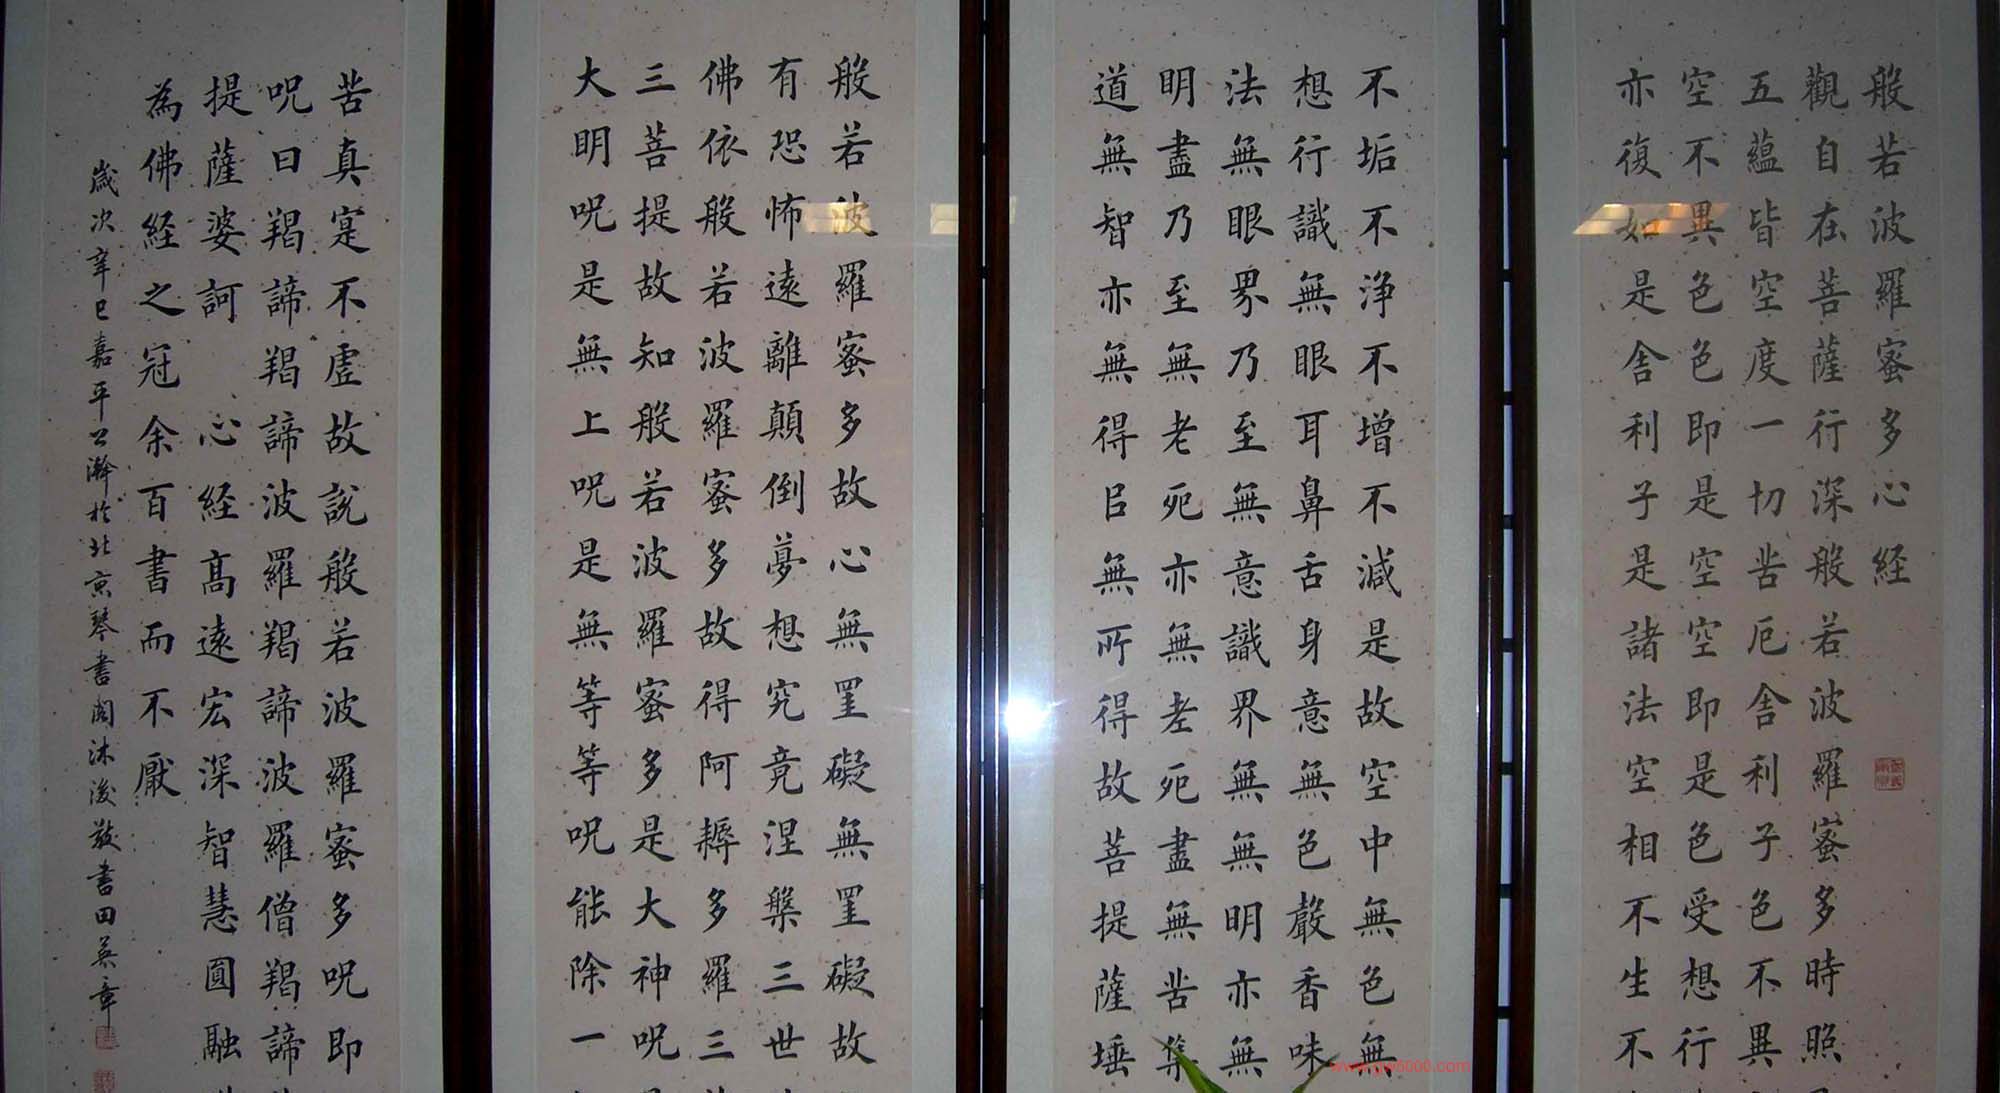 般若波羅蜜多心経
觀自在菩薩行深般若波羅蜜多時照
五蘊皆空度一切苦厄舍利子色不異
空不異色色即是空空即是色受想行
亦復如是舍利子是諸法空相不生不
不垢不浄不增不減是故空中無色無
想行識無眼耳鼻舌身意無色聲香味
法無眼界乃至無意識界無無明亦無
明盡乃至無老死亦無老死盡無苦集
道無智亦無得㠯無所得故菩提薩埵
般若波羅蜜多故心無罣礙無罣礙故
有恐怖遠離顛倒夢想究竟涅槃三世
佛依般若波羅蜜多故得阿耨多羅三
三菩提故知般若波羅蜜多是大神呪
大明呪是無上呪是無等等呪能除一
苦真寔不虛故說般若波羅蜜多呪即
呪曰羯諦羯諦波羅羯諦波羅僧羯諦
提薩婆訶 心経高遠宏深智慧圓融
為佛経之冠余百書而不厭
歲次辛巳嘉平公瀚於北京琴書閣沐浚敬書田英章